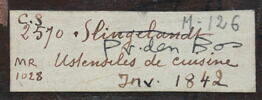 C.S M.126
2570. Slingelandt
P. v. den Bos
MR Ustensiles de cuisine
1028 Inv. 1842